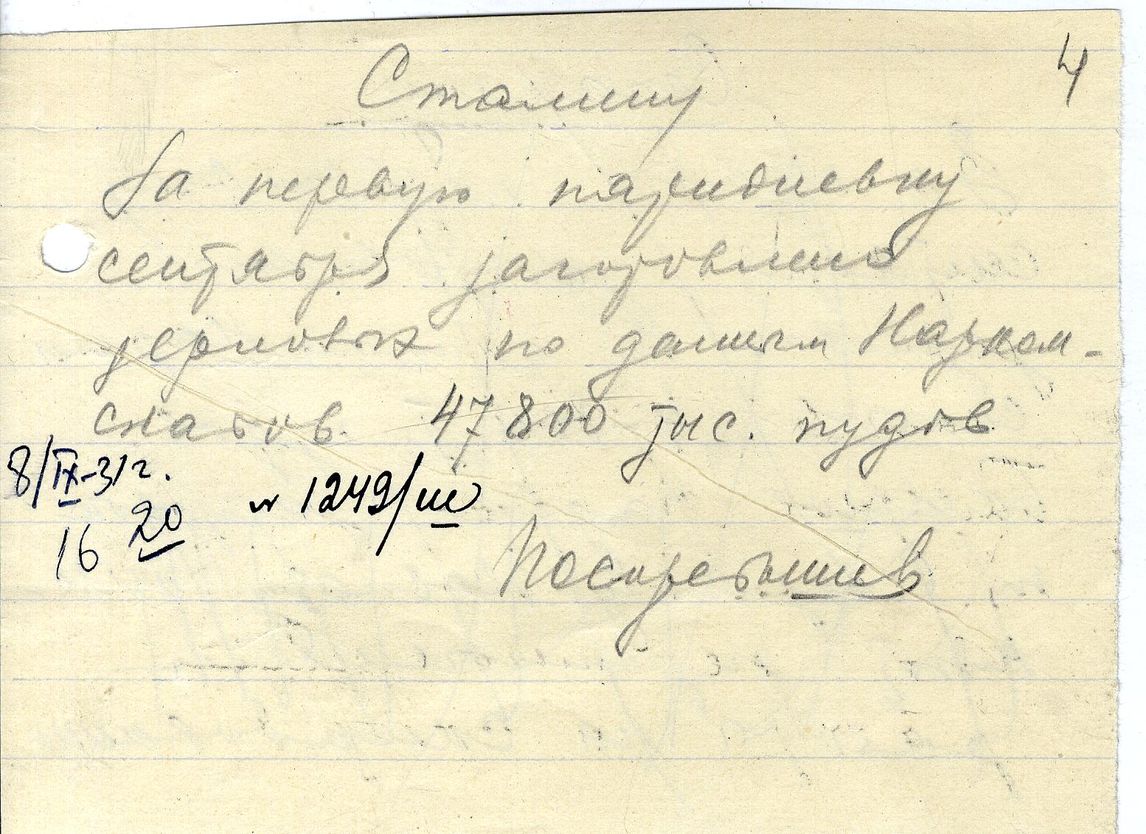 4
Сталину
За первую пятидневку
сентября заготовлено
зерновых по данным Нарком-
снабов 47800 тыс. пудов
8/IX-31г.
16 20
№ 1249/ш
Поскребышев